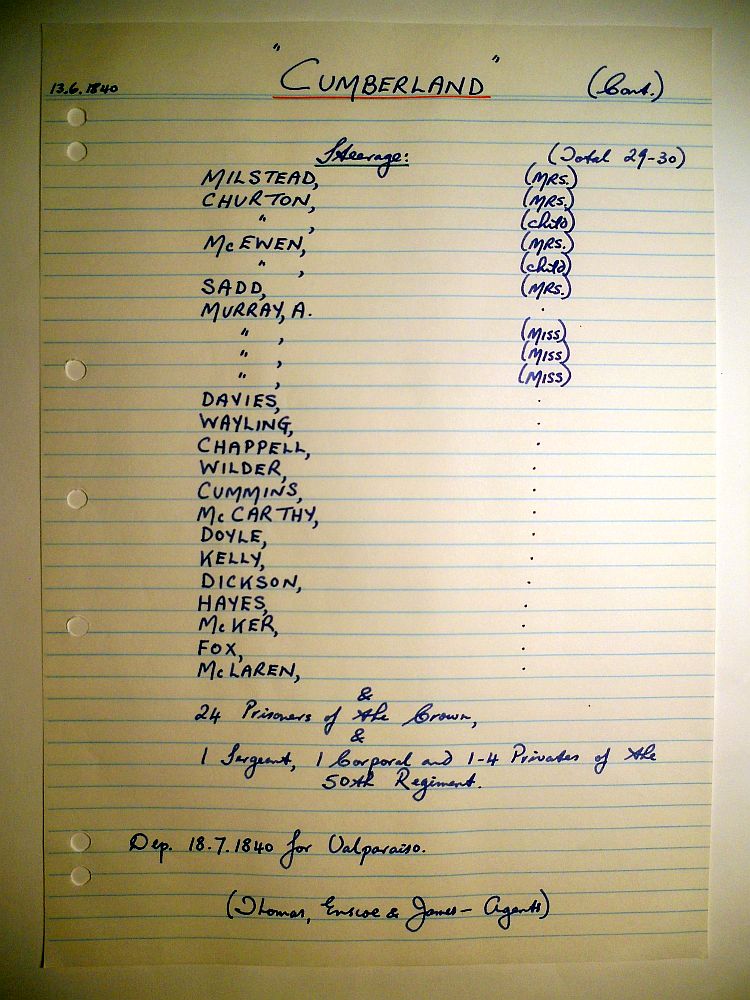 13.6.1840 "CUMBERLAND" (Cont.)
Steerage: (Total 29-30)
MILSTEAD, (MRS.)
CHURTON, (MRS.)
" , (child)
McEWEN, (MRS.)
" , (child)
SADD, (MRS.)
MURRAY, A. .
" , (MISS)
" , (MISS)
" , (MISS)
DAVIES, .
WAYLING, .
CHAPPELL, .
WILDER, .
CUMMINS, .
McCARTHY, .
DOYLE, .
KELLY, .
DICKSON, .
HAYES, .
McKER, .
FOX, .
McLAREN, .
&
24 Prisoners of the Crown,
&
1 Sergeant, 1 Corporal and 1-4 Privates of the
50th Regiment.
Dep. 18.7.1840 for Valparaiso.
(Thomas, Enscoe & James - Agents)